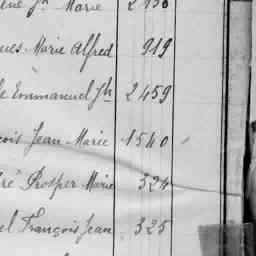 Marie 2
Marie Alfred 919
Emmanuel Jh 2459
Jean Marie 1540
Prosper Marie 324
François Jean 325